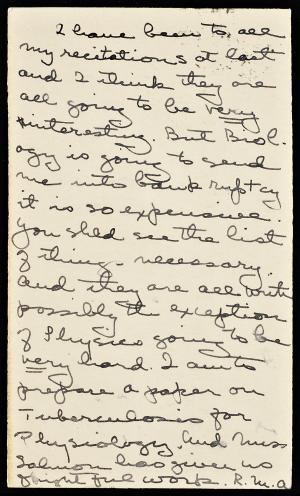 I have been to all
my recitations at last
and I think they are
all going to be very
interesting. But Biol-
ogy is going to send
me into bankruptcy
it is so expensive.
You shld see the list
of things necessary.
And they are all with
possibly the exception
of Physics going to be
very hard. I am to
prepare a paper on
Tuberculosis for
Physiology. And Miss
Salmon has given us
frightful work. R.M.A